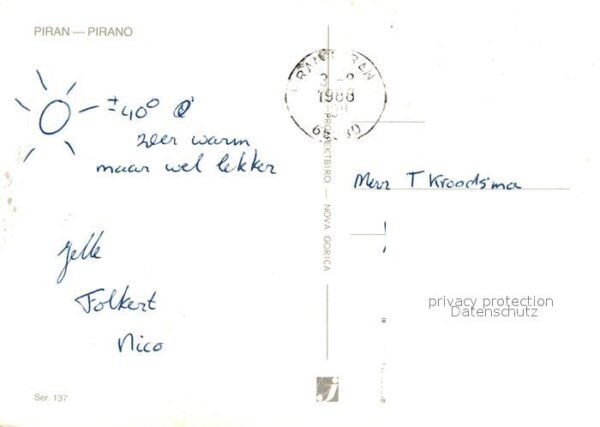 PIRAN — PIRANO
± 40°
zeer warm
maar wel lekker
Jelle
Folkert
Nico
Ser. 137
1988
PROJEKTBIRO — NOVA GORICA
T Kroodsma
privacy protection
Datenschutz